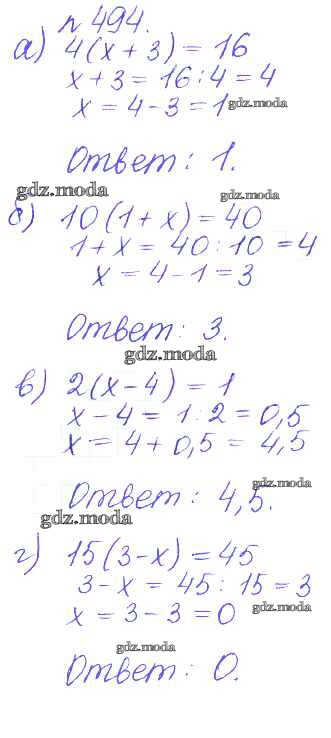 № 494.
а) 4(x + 3) = 16
x + 3 = 16 : 4 = 4
x = 4 - 3 = 1 gdz.moda
Ответ: 1.
gdz.moda gdz.moda
б) 10(1 + x) = 40
1 + x = 40 : 10 = 4
x = 4 - 1 = 3
Ответ: 3.
gdz.moda
в) 2(x - 4) = 1
x - 4 = 1 : 2 = 0,5
x = 4 + 0,5 = 4,5
gdz.moda
Ответ: 4,5.
gdz.moda
г) 15(3 - x) = 45
3 - x = 45 : 15 = 3
x = 3 - 3 = 0 gdz.moda
gdz.moda
Ответ: 0.